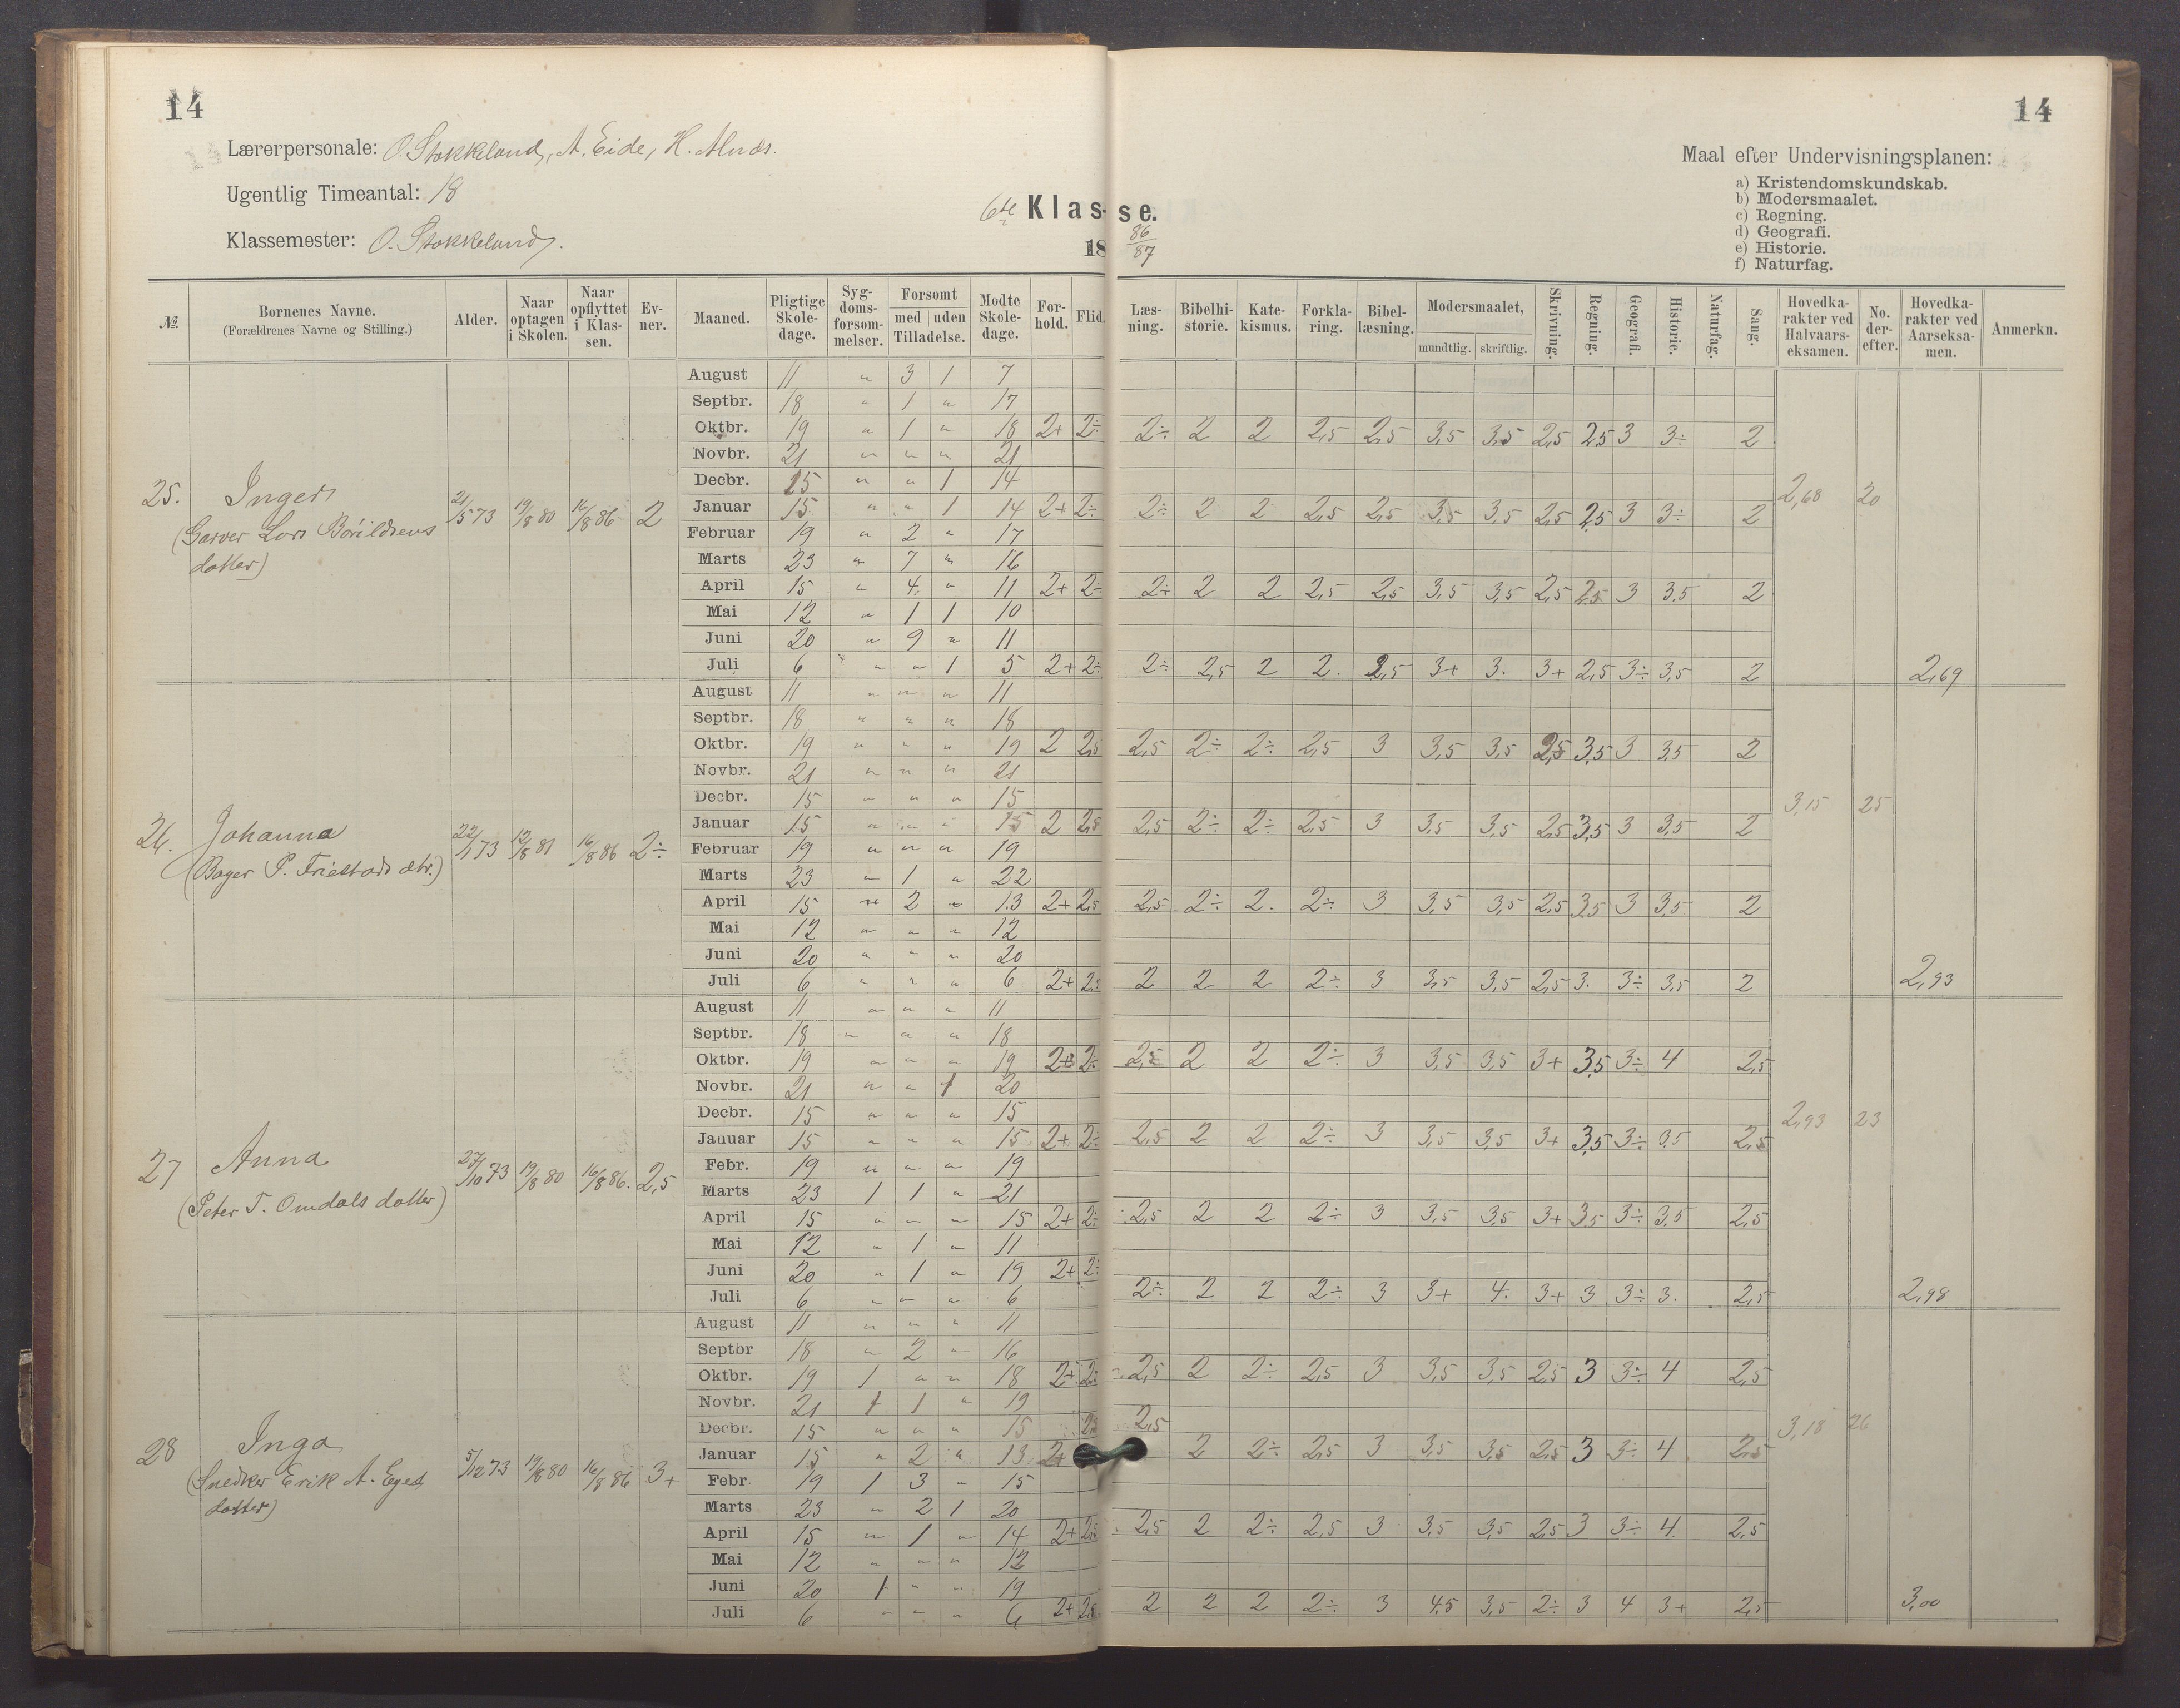 14
14
Lærerpersonale: O. Stokkeland, A. Eide, H. Alnæs.
Ugentlig Timeantal: 18
Klassemester: O. Stokkeland.
6te Klasse.
18 86/87
Maal efter Undervisningsplanen:
a) Kristendomskundskab.
b) Modersmaalet.
c) Regning.
d) Geografi.
e) Historie.
f) Naturfag.
№ Børnenes Navne. (Forældrenes Navne og Stilling.) Alder. Naar optagen i Skolen. Naar opflyttet i Klassen. Evner. Maaned. Pligtige Skoledage. Sygdomsforsømmelser. Forsømt med uden Tilladelse. Mødte Skoledage. Forhold. Flid. Læsning. Bibelhistorie. Katekismus. Forklaring. Bibellæsning. Modersmaalet, mundtlig. skriftlig. Skrivning. Regning. Geografi. Historie. Naturfag. Sang. Hovedkarakter ved Halvaarseksamen. No. derefter. Hovedkarakter ved Aarseksamen. Anmerkn.
25. Inger
(Garver Lars Børildsens
datter)
21/5 73 19/8 80 16/8 86 2
August 11 " 3 1 7
Septbr. 18 " 1 " 17
Oktbr. 19 " 1 " 18 2+ 2÷ 2÷ 2 2 2,5 2,5 3,5 3,5 2,5 2,5 3 3÷ 2
Novbr. 21 " " " 21
Decbr. 15 " " 1 14
Januar 15 " " 1 14 2+ 2÷ 2÷ 2 2 2,5 2,5 3,5 3,5 2,5 2,5 3 3÷ 2 2,68 20
Februar 19 " 2 " 17
Marts 23 " 7 " 16
April 15 " 4 " 11 2+ 2÷ 2÷ 2 2 2,5 2,5 3,5 3,5 2,5 2,5 3 3.5 2
Mai 12 " 1 1 10
Juni 20 " 9 " 11
Juli 6 " " 1 5 2+ 2÷ 2÷ 2,5 2 2. 2,5 3+ 3. 3+ 2,5 3÷ 3,5 2 2,69
26. Johanna
(Bager P. Friestads dtr.)
22/1 73 12/8 81 16/8 86 2÷
August 11 " " " 11
Septbr. 18 " " " 18
Oktbr. 19 " " " 19 2 2,5 2,5 2÷ 2÷ 2,5 3 3,5 3,5 2,5 3,5 3 3,5 2
Novbr. 21 " " " 21
Decbr. 15 " " " 15
Januar 15 " " " 15 2 2,5 2,5 2÷ 2÷ 2,5 3 3,5 3,5 2,5 3,5 3 3,5 2 3,15 25
Februar 19 " " " 19
Marts 23 " 1 " 22
April 15 " 2 " 13 2+ 2,5 2,5 2÷ 2. 2÷ 3 3,5 3,5 2,5 3,5 3 3,5 2
Mai 12 " " " 12
Juni 20 " " " 20
Juli 6 " " " 6 2+ 2,5 2 2 2 2÷ 3 3,5 3,5 2,5 3. 3÷ 3,5 2 2,93
27 Anna
(Peter T. Omdals datter)
27/10 73 19/8 80 16/8 86. 2,5
August 11 " " " 11
Septbr. 18 " " " 18
Oktbr. 19 " " " 19 2+ 2÷ 2,5 2 2 2÷ 3 3,5 3,5 3+ 3,5 3÷ 4 2,5
Novbr. 21 " " 1 20
Decbr. 15 " " " 15
Januar 15 " " " 15 2+ 2÷ 2,5 2 2 2÷ 3 3,5 3,5 3+ 3,5 3÷ 3.5 2,5 2,93 23
Febr. 19 " " " 19
Marts 23 1 1 " 21
April 15 " " " 15 2+ 2÷ 2,5 2 2 2÷ 3 3,5 3,5 3+ 3,5 3÷ 3.5 2,5
Mai 12 " 1 " 11
Juni 20 " 1 " 19 2+ 2÷
Juli 6 " " " 6 2÷ 2 2 2÷ 3 3+ 4. 3+ 3 3÷ 3. 2,5 2,98
28 Inga
(Snedker Erik A. Eges
datter)
5/12 73 19/8 80 16/8 86 3+
August 11 " " " 11
Septbr 18 " 2 " 16
Oktbr. 19 1 " " 18 2+ 2,5 2 2÷ 2,5 3 3,5 3,5 2,5 3 3÷ 4 2,5
Novbr. 21 1 1 " 19
Decbr. 15 " " " 15 2,5 2,5
Januar 15 " 2 " 13 2+ 2 2÷ 2,5 3 3,5 3,5 2,5 3 3÷ 4 2,5 3,18 26
Febr. 19 1 3 " 15
Marts 23 " 2 1 20
April 15 " 1 " 14 2+ 2,5 2,5 2 2÷ 2,5 3 3,5 3,5 2,5 3 3÷ 4. 2,5
Mai 12 " " " 12
Juni 20 1 " " 19
Juli 6 " " " 6 2+ 2,5 2 2 2 2÷ 3 4.5 3,5 2÷ 3 4 3+ 2,5 3,00